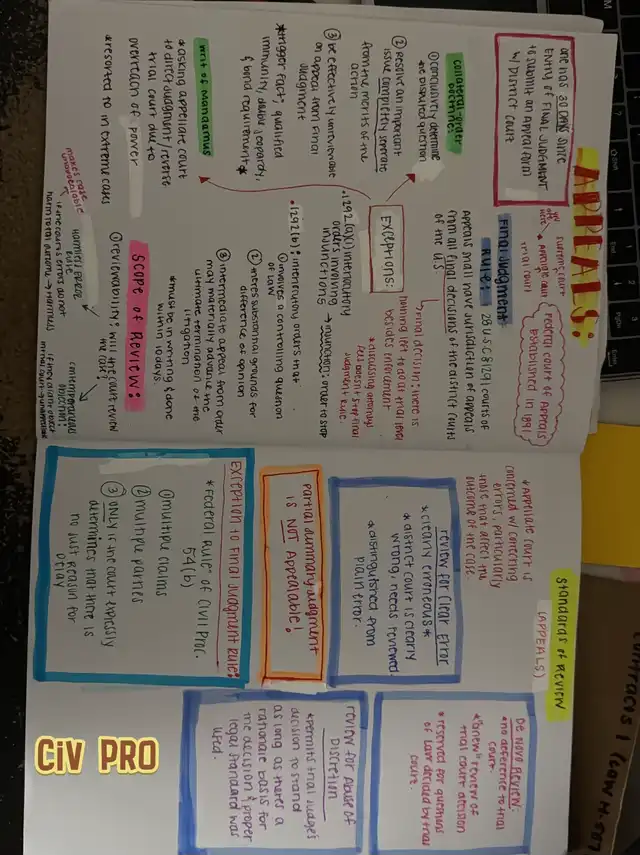 APPEALS:
one has 30 DAYS since
Entry of FINAL JUDGMENT
to submit an Appeal Form
w/ District Court
supreme court
Appellate court
trial court
you are here
Federal court of Appeals
established in 1891
Final Judgment
RULE:
28 U.S.C § 1291 courts of
Appeals shall have jurisdiction of appeals
from all final decisions of the district courts
of the U.S
final decision: there is
nothing left to do at trial level
besides enforcement
*discussing attorney
fees doesn't stop final
judgment rule.
Exceptions:
collateral-order
doctrine:
① conclusively determine
the disputed question
② resolve an important
issue completely separate
from the merits of the
action
③ be effectively unreviewable
on appeal from final
judgment
*trigger fact; qualified
immunity, double jeopardy,
& bond requirement*
writ of Mandamus
*asking appellate court
to direct judgment/reverse
trial court due to
overreach of power
*resorted to in extreme cases
.1292(a)(1) interlocutory
orders involving
injunctions
→ injunction: order to stop
.1292(b): interlocutory orders that
① involves a controlling question
of law
② theres substantial grounds for
difference of opinion
③ intermediate appeal from order
may materially advance the
ultimate termination of the
litigation
*must be in writing & done
within 10 days.
Scope of Review:
① reviewability: will the court review
the case?
harmless error
rule
makes case
unappealable
if the courts errors do not
harm total outcome → HARMLESS
contemporaneous
objection:
Standards of Review
(APPEALS)
*Appellate court is
concerned w/ correcting
errors, particularly
those that affect the
outcome of the case
De Novo Review:
*no deference to trial
court.
*"anew" review of
trial court decision
*reserved for questions
of law decided by trial
court
review for Clear Error
*clearly erroneous*
*district court is clearly
wrong, needs reviewed
*distinguished from
plain error.
review for Abuse of
Discretion
*permits trial judge's
decision to stand
as long as there's a
rationale basis for
the decision & proper
legal standard was
used.
partial summary judgment
is NOT Appealable!
EXCEPTION to final Judgment Rule:
*Federal Rule of Civil Proc.
54(b)
① multiple claims
② multiple parties
③ ONLY if the court expressly
determines that there is
no just reason for
delay
CIV PRO